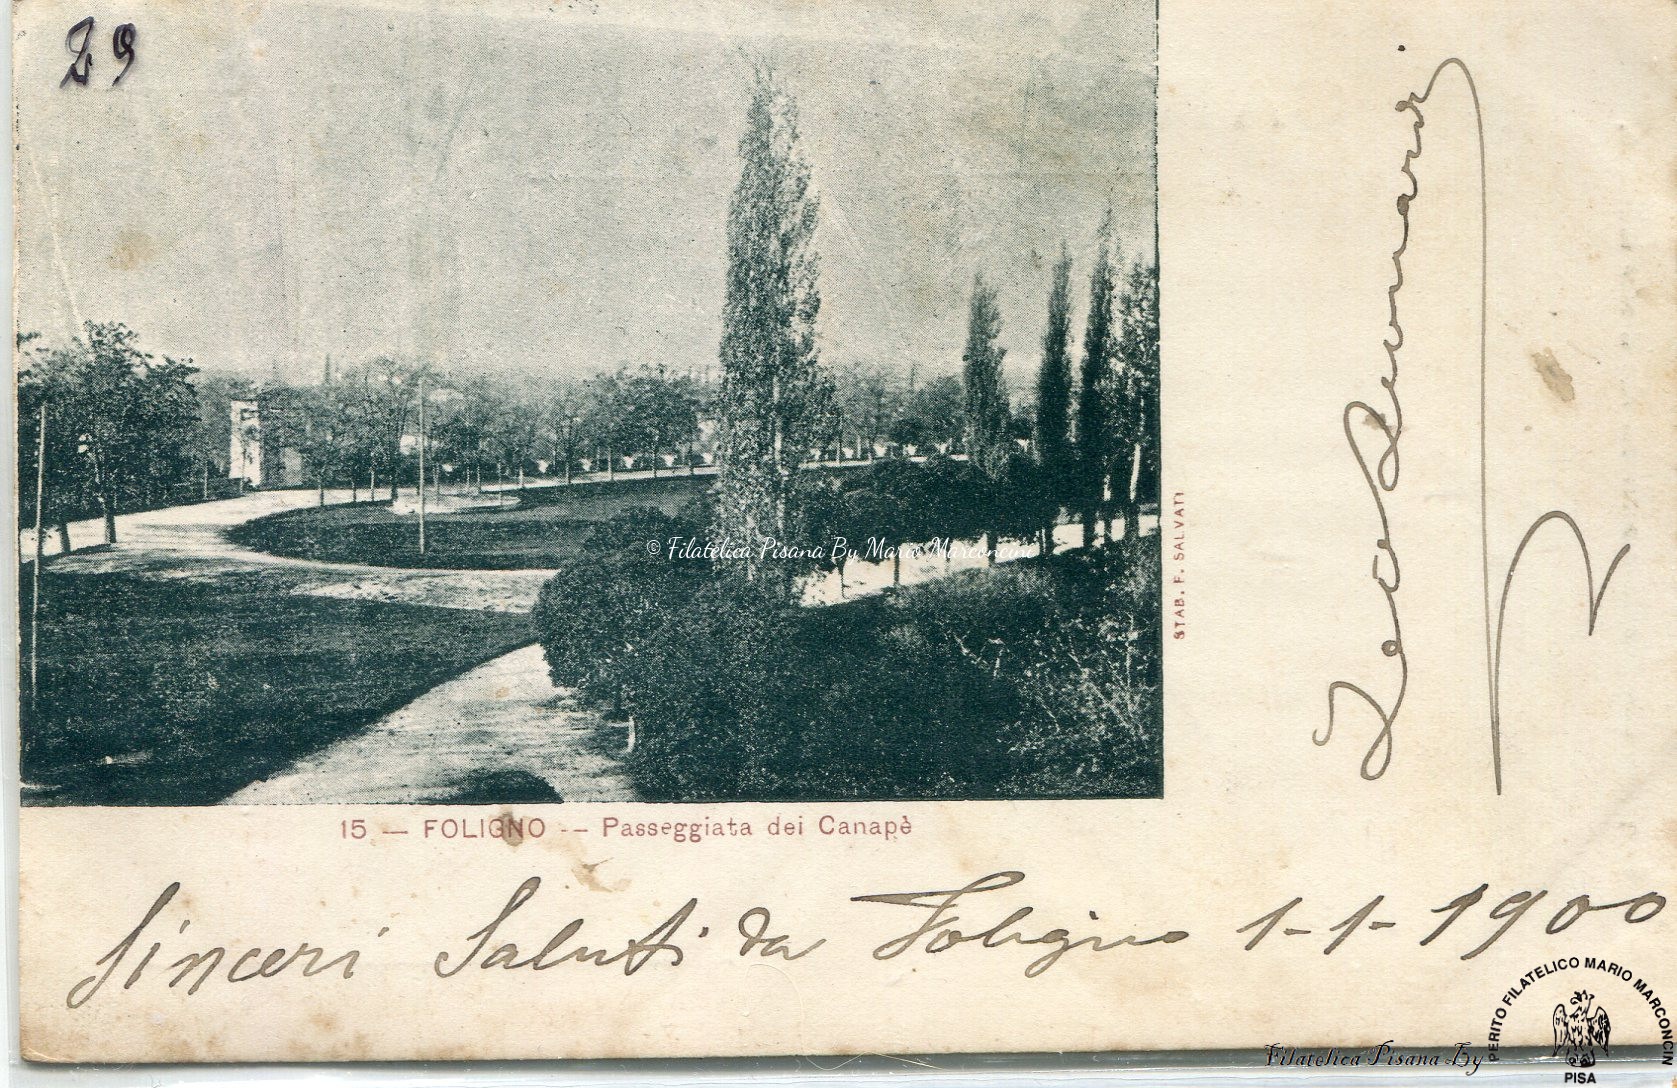 29
© Filatelica Pisana By Mario Marconcini
STAB. F. SALVATI
15 — FOLIGNO -- Passeggiata dei Canapè
Sinceri Saluti da Foligno 1-1-1900
PERITO FILATELICO MARIO MARCONCINI
PISA
Filatelica Pisana By